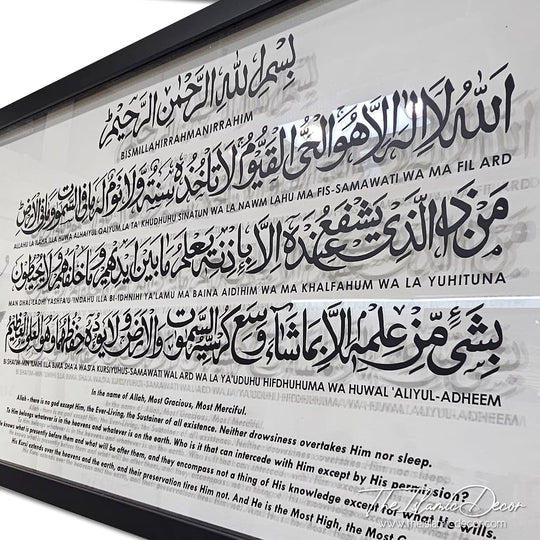 بسم الله الرحمن الرحيم
BISMILLAHIRRAHMANIRRAHIM
الله لا اله الا هو الحي القيوم لا تأخذه سنة ولا نوم له ما في السموت وما في الارض
ALLAHU LA ILAHA ILLA HUWA ALHAYUL QAIYUM LA TA' KHUDHUHU SINATUN WA LA NAWM LAHU MA FIS-SAMAWATI WA MA FIL ARD
من ذا الذي يشفع عنده الا باذنه يعلم ما بين ايديهم وما خلفهم ولا يحيطون
MAN DHAL-LADHI YASHFA'U 'INDAHU ILLA BI-IDHNIHI YA'LAMU MA BAINA AIDIHIM WA MA KHALFAHUM WA LA YUHITUNA
بشيء من علمه الا بما شاء وسع كرسيه السموت والارض ولا يوده حفظهما وهو العلي العظيم
BI SHAI'IM-MIN 'ILMIHI ILLA BIMA SHA'A WASI'A KURSIYUHUS-SAMAWATI WAL ARD WA LA YA'UDUHU HIFDHUHUMA WA HUWAL 'ALIYUL-ADHEEM
In the name of Allah, Most Gracious, Most Merciful.
Allah - there is no god except Him, the Ever-Living, the Sustainer of all existence. Neither drowsiness overtakes Him nor sleep.
To Him belongs whatever is in the heavens and whatever is on the earth. Who is it that can intercede with Him except by His permission?
He knows what is presently before them and what will be after them, and they encompass not a thing of His knowledge except for what He wills.
His Kursi extends over the heavens and the earth, and their preservation tires Him not. And He is the Most High, the Most
The Islamic Decor
www.theislamicdecor.com